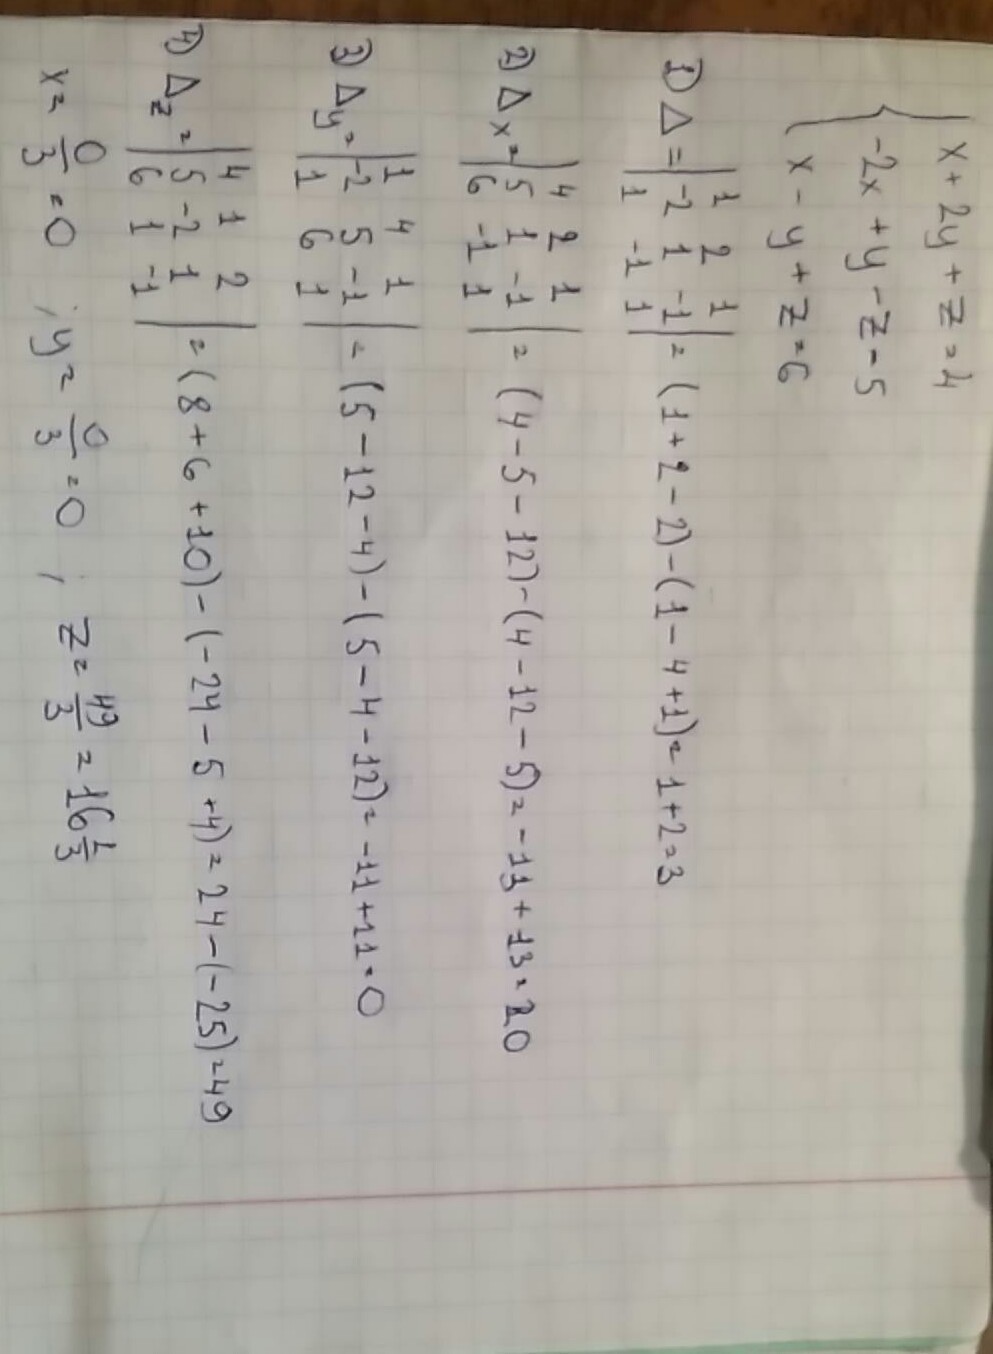 x + 2y + z = 4
-2x + y - z = 5
x - y + z = 6
1) Δ = | 1 2 1 |
| -2 1 -1 |
| 1 -1 1 | = (1 + 2 - 2) - (1 - 4 + 1) = 1 + 2 = 3
2) Δx = | 4 2 1 |
| 5 1 -1 |
| 6 -1 1 | = (4 - 5 - 12) - (4 - 12 - 5) = -13 + 13 = 0
3) Δy = | 1 4 1 |
| -2 5 -1 |
| 1 6 1 | = (5 - 12 - 4) - (5 - 4 - 12) = -11 + 11 = 0
4) Δz = | 4 1 2 |
| 5 -2 1 |
| 6 1 -1 | = (8 + 6 + 10) - (-24 - 5 + 4) = 24 - (-25) = 49
x = 0/3 = 0 ; y = 0/3 = 0 ; z = 49/3 = 16 1/3